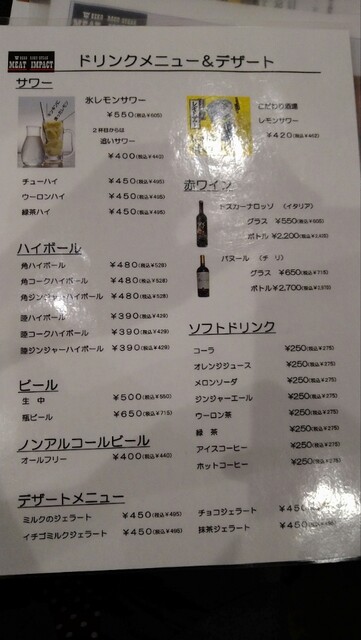 MEAT IMPACT
ドリンクメニュー＆デザート
サワー
氷レモンサワー
￥550(税込￥605)
２杯目からは
追いサワー
￥400(税込￥440)
こだわり酒場
レモンサワー
￥420(税込￥462)
チューハイ ￥450(税込￥495)
ウーロンハイ ￥450(税込￥495)
緑茶ハイ ￥450(税込￥495)
赤ワイン
トスカーナロッソ （イタリア）
グラス ￥550(税込￥605)
ボトル￥2,200(税込￥2,420)
パヌール （チリ）
グラス ￥650(税込￥715)
ボトル￥2,700(税込￥2,970)
ハイボール
角ハイボール ￥480(税込￥528)
角コークハイボール ￥480(税込￥528)
角ジンジャーハイボール ￥480(税込￥528)
陸ハイボール ￥390(税込￥429)
陸コークハイボール ￥390(税込￥429)
陸ジンジャーハイボール ￥390(税込￥429)
ソフトドリンク
コーラ ￥250(税込￥275)
オレンジジュース ￥250(税込￥275)
メロンソーダ ￥250(税込￥275)
ジンジャーエール ￥250(税込￥275)
ウーロン茶 ￥250(税込￥275)
緑 茶 ￥250(税込￥275)
アイスコーヒー ￥250(税込￥275)
ホットコーヒー ￥250(税込￥275)
ビール
生 中 ￥500(税込￥550)
瓶ビール ￥650(税込￥715)
ノンアルコールビール
オールフリー ￥400(税込￥440)
デザートメニュー
ミルクのジェラート ￥450(税込￥495)
イチゴミルクジェラート ￥450(税込￥495)
チョコジェラート ￥450
抹茶ジェラート ￥450